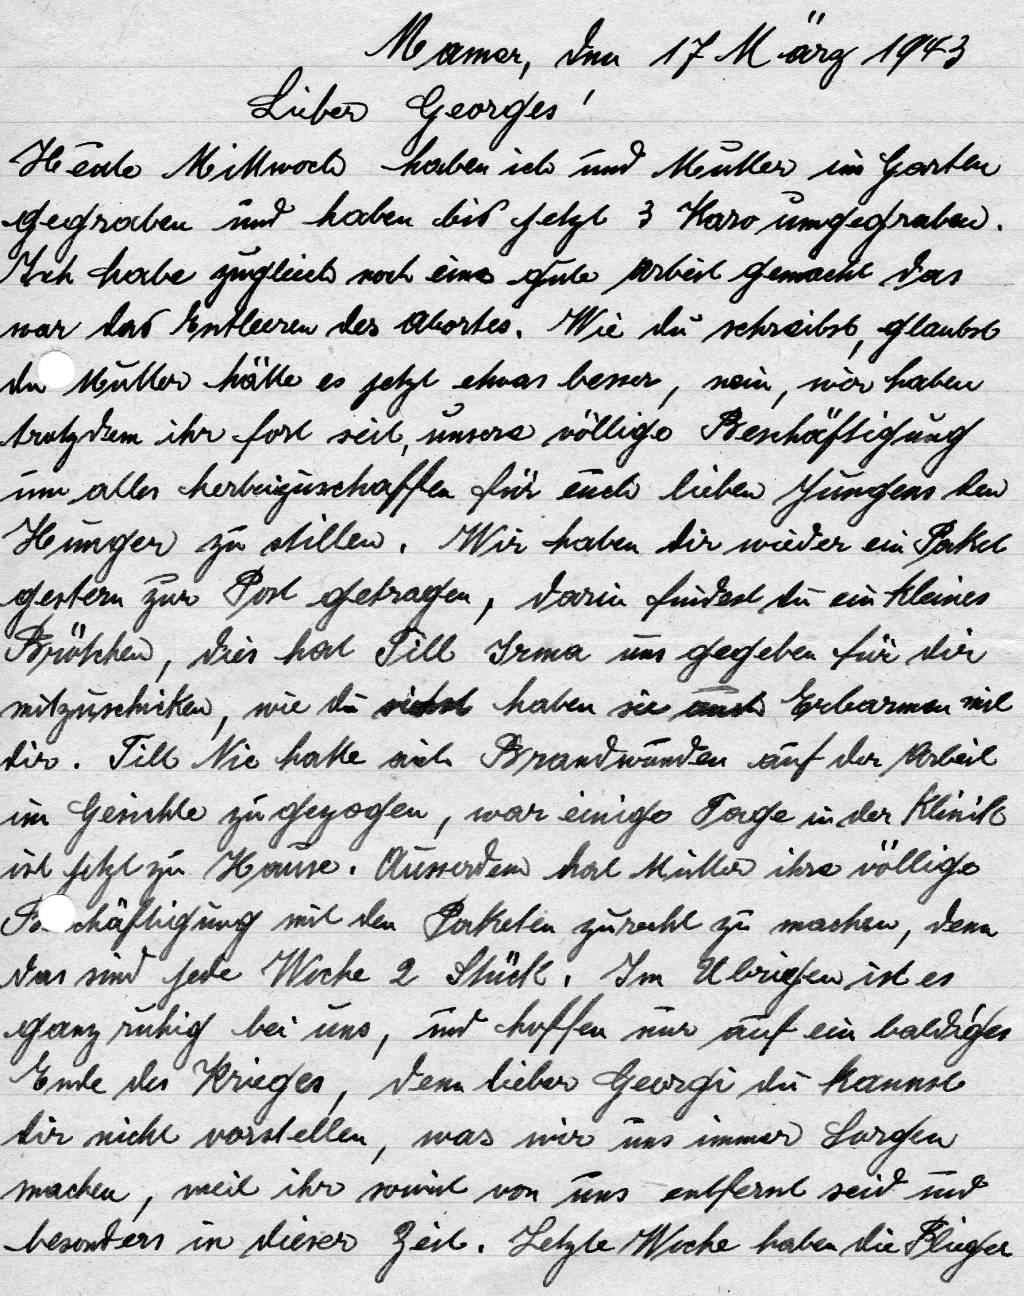 Mamer, den 17 März 1943
Lieber Georges!
Heute Mittwoch haben ich und Mutter im Garten
gegraben und haben bis jetzt 3 Karo umgegraben.
Ich habe zugleich noch eine gute Arbeit gemacht das
war das Entleeren des Abortes. Wie du schreibst, glaubst
du Mutter hätte es jetzt etwas besser, nein, wir haben
trotzdem ihr fort seit, unsere völlige Beschäftigung
um alles herbeizuschaffen für euch lieben Jungens den
Hunger zu stillen. Wir haben dir wieder ein Paket
gestern zur Post getragen, darin findest du ein kleines
Brötchen, dies hat Till Irma uns gegeben für dir
mitzuschicken, wie du siehst haben sie auch Erbarmen mit
dir. Till Nic hatte sich Brandwunden auf der Arbeit
im Gesichte zugezogen, war einige Tage in der Klinik
ist jetzt zu Hause. Ausserdem hat Mutter ihre völlige
Beschäftigung mit den Paketen zurecht zu machen, denn
das sind jede Woche 2 Stück. Im Übrigen ist es
ganz ruhig bei uns, und hoffen nur auf ein baldiges
Ende des Krieges, denn lieber Georgi du kannst
dir nicht vorstellen, was wir uns immer Sorgen
machen, weil ihr soweit von uns entfernt seid und
besonders in dieser Zeit. Letzte Woche haben die Flieger